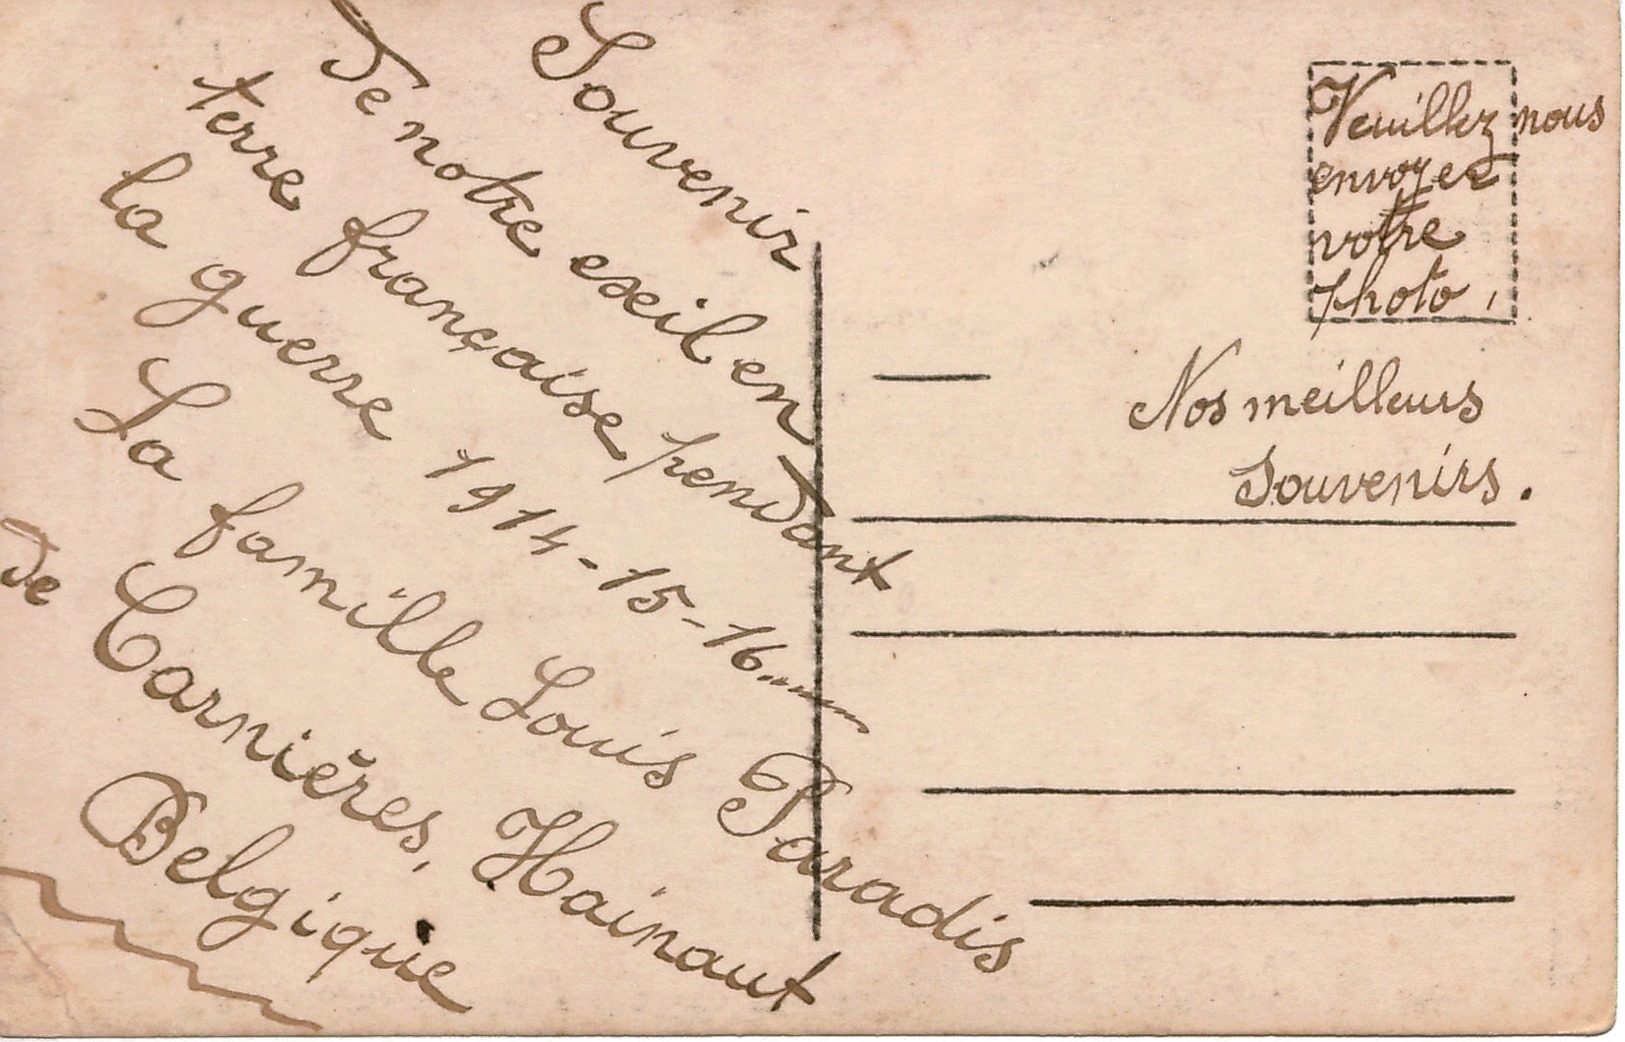 Souvenir
de notre exeil en
terre française pendant
la guerre 1914-15-16.....
La famille Louis Paradis
de Carnières, Hainaut
Belgique
Veuillez nous
envoyer
votre
photo.
Nos meilleurs
Souvenirs.